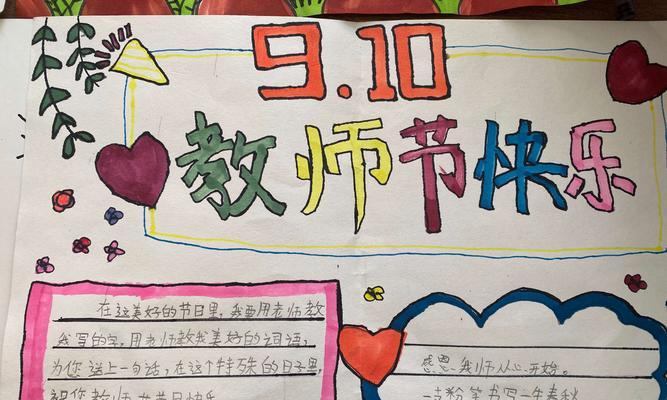 9.10
教师节快乐
在这美好的节日里，我要用老师教
我写的字，用老师教我美好的词语，
为您送上一句话，在这个特殊的日子里，
祝您教师节节日快乐
感恩教师从心开始。
一支粉笔书写一生春秋